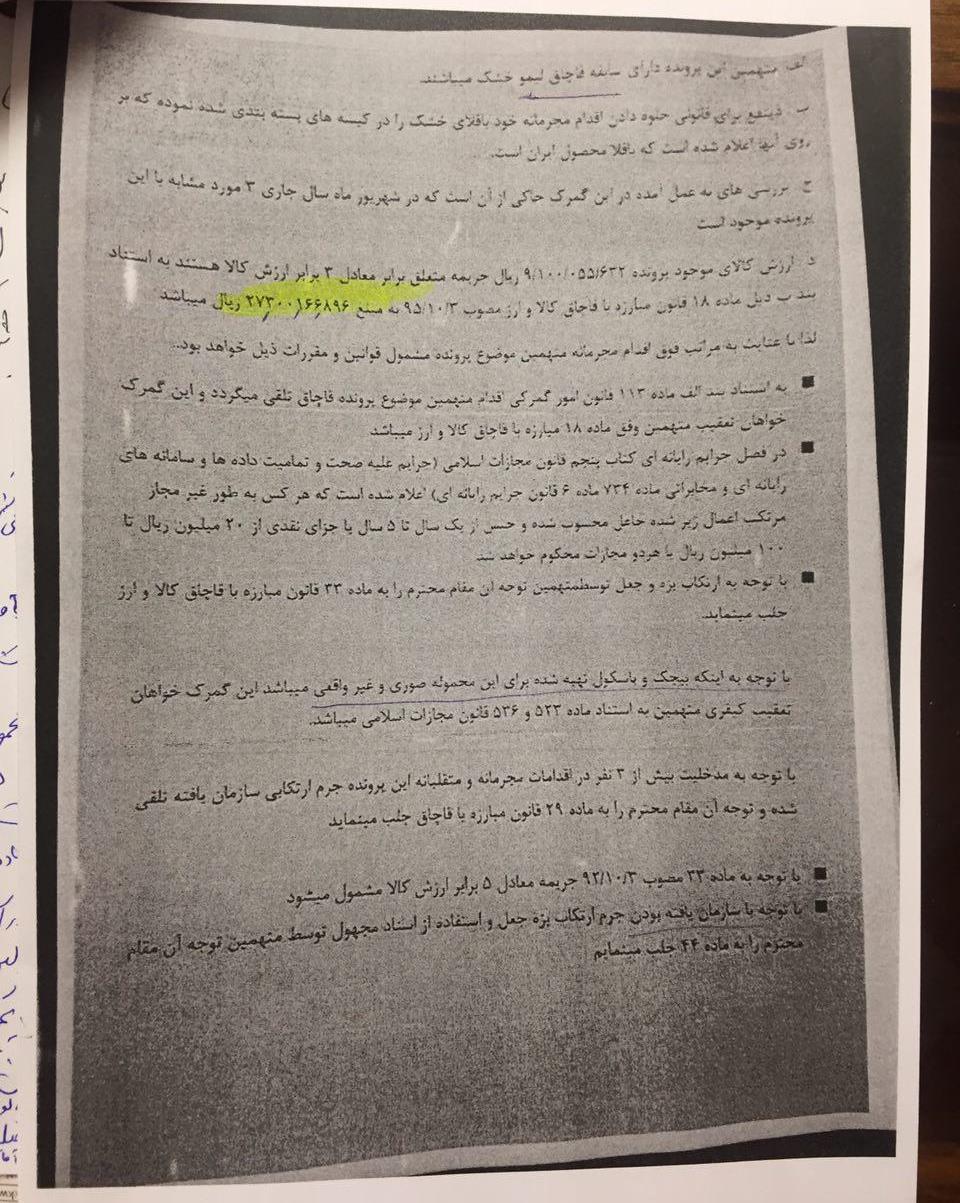 الف متهمین این پرونده دارای سابقه قاچاق لیمو خشک میباشند.
ب – ذینفع برای قانونی جلوه دادن اقدام مجرمانه خود باقلای خشک را در کیسه های بسته بندی شده نموده که بر
روی آنها اعلام شده است که باقلا محصول ایران است.
ج بررسی های به عمل آمده در این گمرک حاکی از آن است که در شهریور ماه سال جاری ۳ مورد مشابه با این
پرونده موجود است
د – ارزش کالای موجود پرونده ۹/۱۰۰/۰۵۵/۶۳۲ ریال جریمه متعلق برابر معادل ۳ برابر ارزش کالا هستند به استناد
بند ب ذیل ماده ۱۸ قانون مبارزه با قاچاق کالا و ارز مصوب ۹۵/۱۰/۳ به مبلغ ۲۷۳۰۰۱۶۶۸۹۶ ریال میباشد
لذا با عنایت به مراتب فوق اقدام مجرمانه متهمین موضوع پرونده مشمول قوانین و مقررات ذیل خواهد بود..
■ به استناد بند الف ماده ۱۱۳ قانون امور گمرکی اقدام متهمین موضوع پرونده قاچاق تلقی میگردد و این گمرک
خواهان تعقیب متهمین وفق ماده ۱۸ مبارزه با قاچاق کالا و ارز میباشد
■ در فصل جرایم رایانه ای کتاب پنجم قانون مجازات اسلامی (جرایم علیه صحت و تمامیت داده ها و سامانه های
رایانه ای و مخابراتی ماده ۷۳۴ ماده ۶ قانون جرایم رایانه ای) اعلام شده است که هر کس به طور غیر مجاز
مرتکب اعمال زیر شده جاعل محسوب شده و حبس از یک سال تا ۵ سال یا جزای نقدی از ۲۰ میلیون ریال تا
۱۰۰ میلیون ریال یا هردو مجازات محکوم خواهد شد
■ با توجه به ارتکاب بزه و جعل توسطمتهمین توجه آن مقام محترم را به ماده ۳۳ قانون مبارزه با قاچاق کالا و ارز
جلب مینماید.
با توجه به اینکه بیجک و باسکول تهیه شده برای این محموله صوری و غیر واقعی میباشد این گمرک خواهان
تعقیب کیفری متهمین به استناد ماده ۵۲۳ و ۵۳۶ قانون مجازات اسلامی میباشد.
با توجه به مدخلیت بیش از ۳ نفر در اقدامات مجرمانه و متقلبانه این پرونده جرم ارتکابی سازمان یافته تلقی
شده و توجه آن مقام محترم را به ماده ۲۹ قانون مبارزه با قاچاق جلب مینماید
■ با توجه به ماده ۳۳ مصوب ۹۲/۱۰/۳ جریمه معادل ۵ برابر ارزش کالا مشمول میشود
■ با توجه با سازمان یافته بودن جرم ارتکاب بزه جعل و استفاده از اسناد مجهول توسط متهمین توجه آن مقام
محترم را به ماده ۴۴ جلب مینمایم